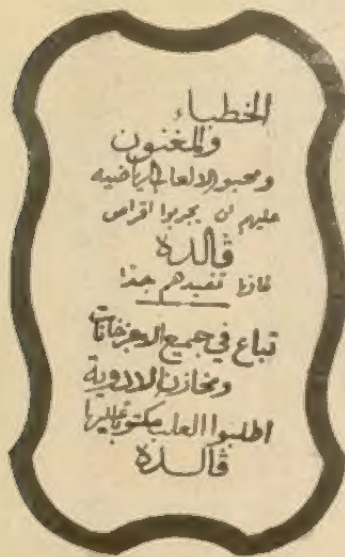 الخطباء
والمغنون
ومحبو الالعاب الرياضيه
عليهم ان يجربوا اقراص
ڤالدة
فانها تفيدهم جدا
تباع في جميع الاجزاخانات
ومخازن الادوية
اطلبوا العلب مكتوبا عليها
ڤالدة